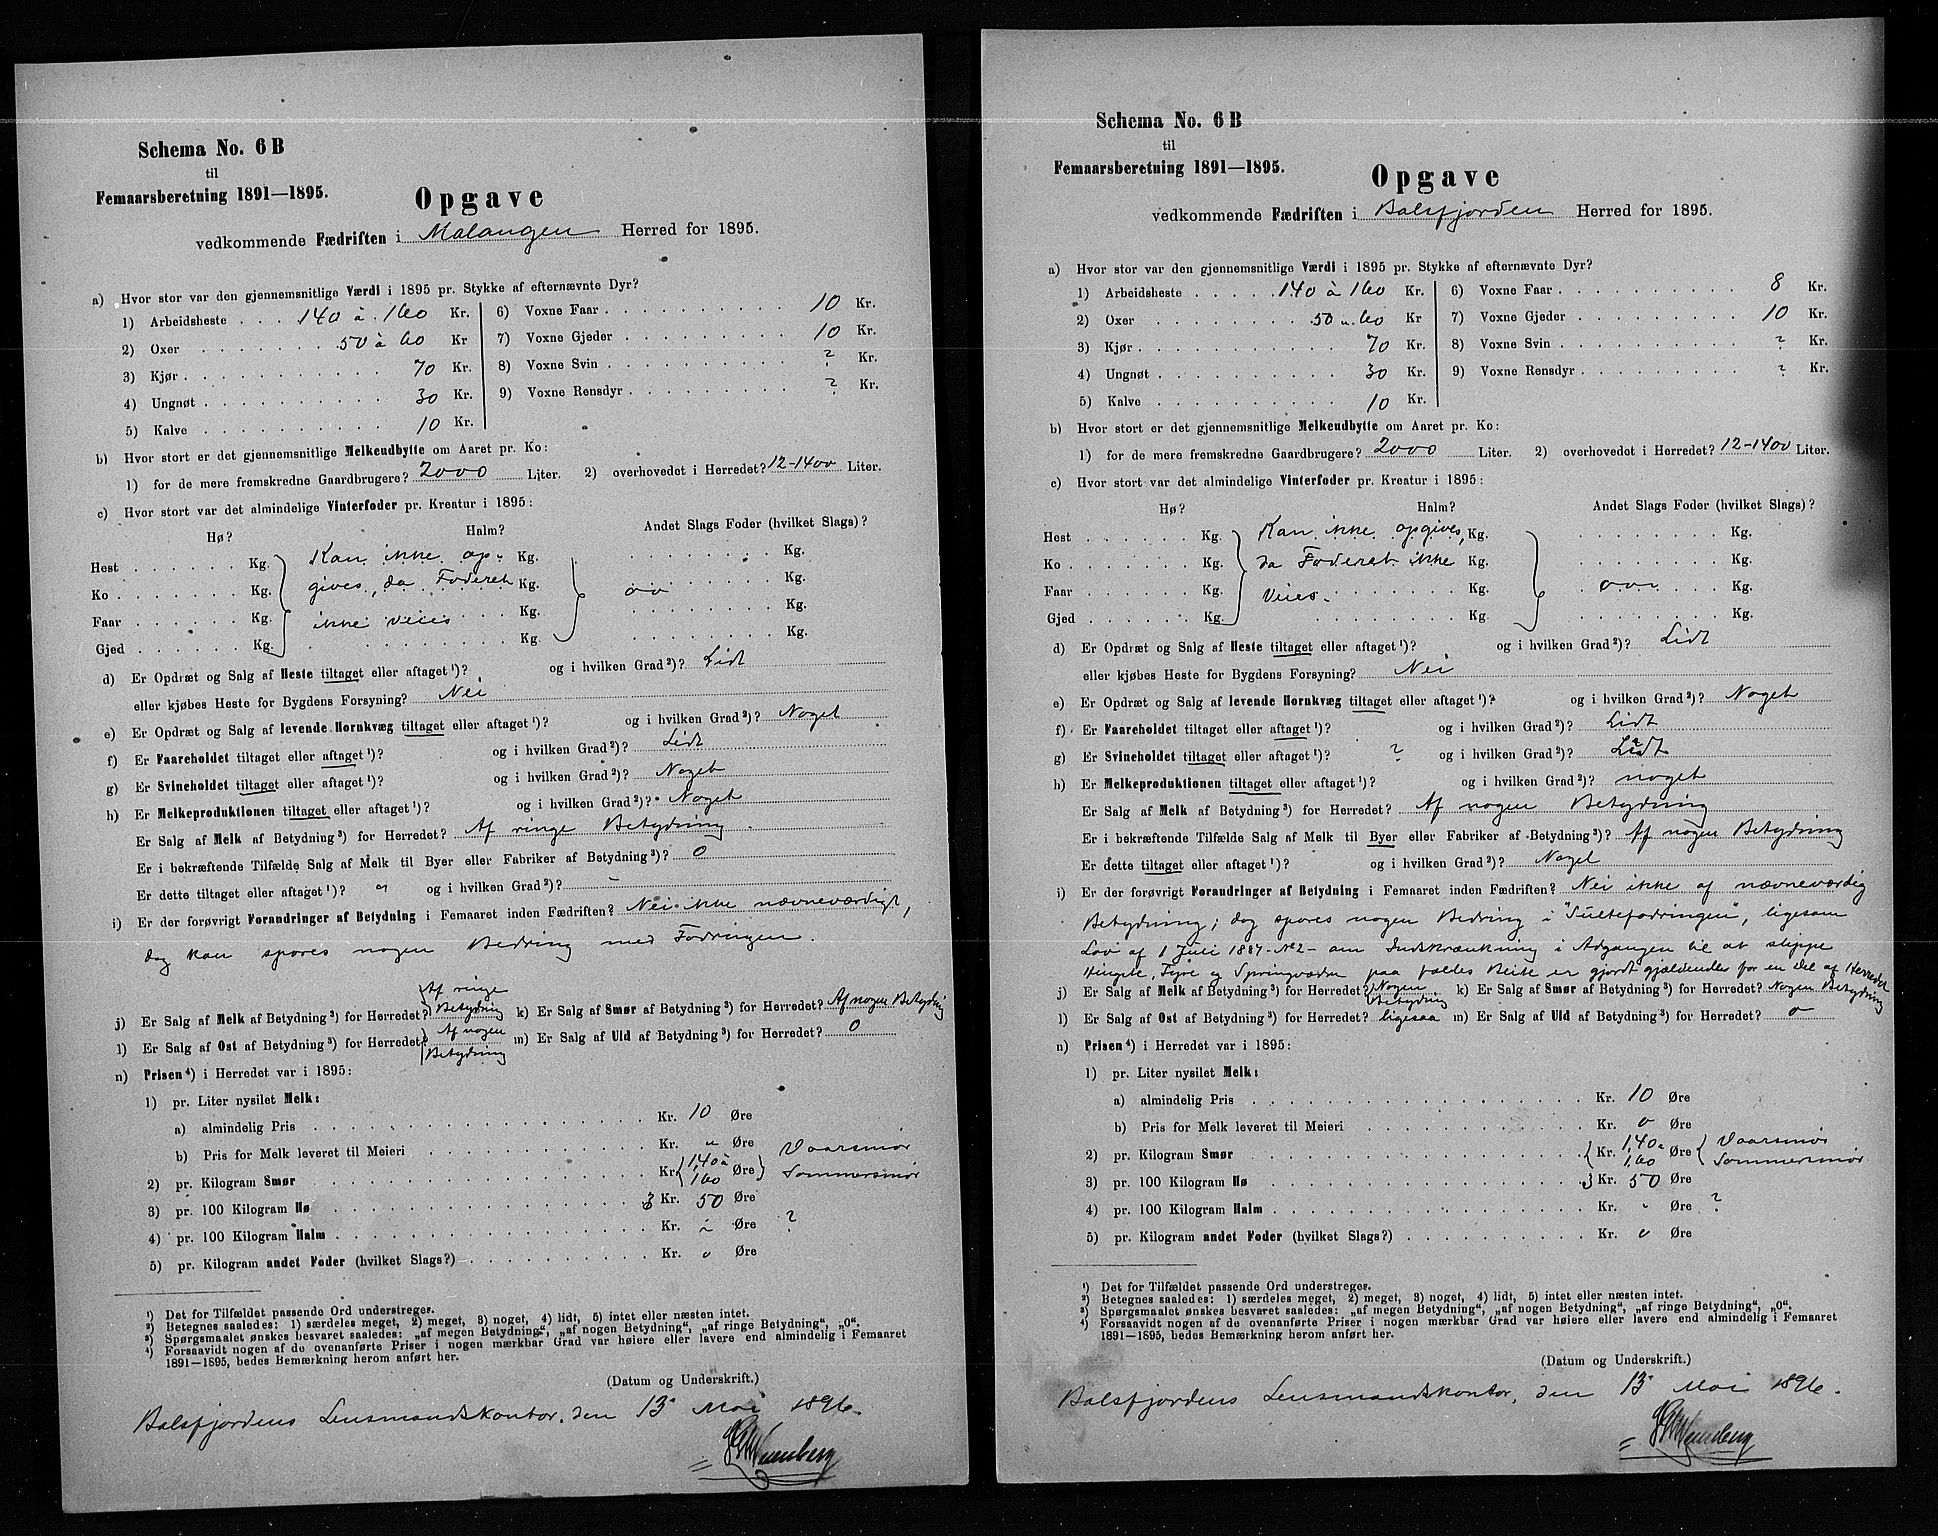 Schema No. 6 B
til
Femaarsberetning 1891—1895.
Opgave
vedkommende Fædriften i Malangen Herred for 1895.
a) Hvor stor var den gjennemsnitlige Værdi i 1895 pr. Stykke af efternævnte Dyr?
1) Arbeidsheste 140 à 160 Kr. 6) Voxne Faar 10 Kr.
2) Oxer 50 à 60 Kr 7) Voxne Gjeder 10 Kr.
3) Kjør 70 Kr. 8) Voxne Svin ? Kr.
4) Ungnøt 30 Kr. 9) Voxne Rensdyr ? Kr.
5) Kalve 10 Kr.
b) Hvor stort er det gjennemsnitlige Melkeudbytte om Aaret pr. Ko:
1) for de mere fremskredne Gaardbrugere? 2000 Liter. 2) overhovedet i Herredet? 12-1400 Liter.
c) Hvor stort var det almindelige Vinterfoder pr. Kreatur i 1895:
Hø? Halm? Andet Slags Foder (hvilket Slags)?
Hest Kg. Kan ikke op- Kg. Kg.
Ko Kg. gives, da Foderet Kg. Kg.
Faar Kg. ikke veies Kg. Kg.
Gjed Kg. Kg. Kg.
d) Er Opdræt og Salg af Heste tiltaget eller aftaget ¹)? og i hvilken Grad ²)? Lidt
eller kjøbes Heste for Bygdens Forsyning? Nei
e) Er Opdræt og Salg af levende Hornkvæg tiltaget eller aftaget ¹)? og i hvilken Grad ²)? Noget
f) Er Faareholdet tiltaget eller aftaget ¹)? og i hvilken Grad ²)? Lidt
g) Er Svineholdet tiltaget eller aftaget ¹)? og i hvilken Grad ²)? Noget
h) Er Melkeproduktionen tiltaget eller aftaget ¹)? og i hvilken Grad ²)? Noget
Er Salg af Melk af Betydning ³) for Herredet? Af ringe Betydning.
Er i bekræftende Tilfælde Salg af Melk til Byer eller Fabriker af Betydning ³)? 0
Er dette tiltaget eller aftaget ¹)? og i hvilken Grad ²)?
i) Er der forøvrigt Forandringer af Betydning i Femaaret inden Fædriften? Nei ikke nævneværdigt,
dog kan spores nogen Bedring med Fodringen.
j) Er Salg af Melk af Betydning ³) for Herredet? Af ringe Betydning k) Er Salg af Smør af Betydning ³) for Herredet? Af nogen Betydning
l) Er Salg af Ost af Betydning ³) for Herredet? Af nogen Betydning m) Er Salg af Uld af Betydning ³) for Herredet? 0
n) Prisen ⁴) i Herredet var i 1895:
1) pr. Liter nysilet Melk:
a) almindelig Pris Kr. 10 Øre
b) Pris for Melk leveret til Meieri Kr. Øre
2) pr. Kilogram Smør Kr. 1,40 à 160 Øre Vaarsmør Sommersmør
3) pr. 100 Kilogram Hø 3 Kr. 50 Øre
4) pr. 100 Kilogram Halm Kr. Øre ?
5) pr. Kilogram andet Foder (hvilket Slags?) Kr. 0 Øre
¹) Det for Tilfældet passende Ord understreges.
²) Betegnes saaledes: 1) særdeles meget, 2) meget, 3) noget, 4) lidt, 5) intet eller næsten intet.
³) Spørgsmaalet ønskes besvaret saaledes: „af megen Betydning“, „af nogen Betydning“, „af ringe Betydning“, „0“.
⁴) Forsaavidt nogen af de ovenanførte Priser i nogen mærkbar Grad var høiere eller lavere end almindelig i Femaaret
1891—1895, bedes Bemærkning herom anført her.
(Datum og Underskrift.)
Balsfjordens Lensmandskontor, den 13 Mai 1896.
Schema No. 6 B
til
Femaarsberetning 1891—1895.
Opgave
vedkommende Fædriften i Balsfjorden Herred for 1895.
a) Hvor stor var den gjennemsnitlige Værdi i 1895 pr. Stykke af efternævnte Dyr?
1) Arbeidsheste 140 à 160 Kr. 6) Voxne Faar 8 Kr.
2) Oxer 50 à 60 Kr 7) Voxne Gjeder 10 Kr.
3) Kjør 70 Kr. 8) Voxne Svin ? Kr.
4) Ungnøt 30 Kr. 9) Voxne Rensdyr ? Kr.
5) Kalve 10 Kr.
b) Hvor stort er det gjennemsnitlige Melkeudbytte om Aaret pr. Ko:
1) for de mere fremskredne Gaardbrugere? 2000 Liter. 2) overhovedet i Herredet? 12-1400 Liter.
c) Hvor stort var det almindelige Vinterfoder pr. Kreatur i 1895:
Hø? Halm? Andet Slags Foder (hvilket Slags)?
Hest Kg. Kan ikke opgives, Kg. Kg.
Ko Kg. da Foderet ikke Kg. Kg.
Faar Kg. veies. Kg. Kg.
Gjed Kg. Kg. Kg.
d) Er Opdræt og Salg af Heste tiltaget eller aftaget ¹)? og i hvilken Grad ²)? Lidt
eller kjøbes Heste for Bygdens Forsyning? Nei
e) Er Opdræt og Salg af levende Hornkvæg tiltaget eller aftaget ¹)? og i hvilken Grad ²)? Noget
f) Er Faareholdet tiltaget eller aftaget ¹)? og i hvilken Grad ²)? Lidt
g) Er Svineholdet tiltaget eller aftaget ¹)? ? og i hvilken Grad ²)? Lidt
h) Er Melkeproduktionen tiltaget eller aftaget ¹)? og i hvilken Grad ²)? noget
Er Salg af Melk af Betydning ³) for Herredet? Af nogen Betydning
Er i bekræftende Tilfælde Salg af Melk til Byer eller Fabriker af Betydning ³)? Af nogen Betydning
Er dette tiltaget eller aftaget ¹)? og i hvilken Grad ²)? Noget
i) Er der forøvrigt Forandringer af Betydning i Femaaret inden Fædriften? Nei ikke af nævneværdig
Betydning; dog spores nogen Bedring i "Sultefodringen", ligesom
Lov af 1 Juli 1887 - No 2 - om Indskrænkning i Adgangen til at slippe
Hingste, Tyre og Springvædre paa fælles Beite er gjordt gjældende for en del af Herredet
j) Er Salg af Melk af Betydning ³) for Herredet? Nogen Betydning k) Er Salg af Smør af Betydning ³) for Herredet? Nogen Betydning
l) Er Salg af Ost af Betydning ³) for Herredet? ligesaa m) Er Salg af Uld af Betydning ³) for Herredet? 0
n) Prisen ⁴) i Herredet var i 1895:
1) pr. Liter nysilet Melk:
a) almindelig Pris Kr. 10 Øre
b) Pris for Melk leveret til Meieri Kr. 0 Øre
2) pr. Kilogram Smør Kr. 1,40 à 1,60 Øre Vaarsmør Sommersmør
3) pr. 100 Kilogram Hø 3 Kr. 50 Øre
4) pr. 100 Kilogram Halm Kr. Øre ?
5) pr. Kilogram andet Foder (hvilket Slags?) Kr. 0 Øre
¹) Det for Tilfældet passende Ord understreges.
²) Betegnes saaledes: 1) særdeles meget, 2) meget, 3) noget, 4) lidt, 5) intet eller næsten intet.
³) Spørgsmaalet ønskes besvaret saaledes: „af megen Betydning“, „af nogen Betydning“, „af ringe Betydning“, „0“.
⁴) Forsaavidt nogen af de ovenanførte Priser i nogen mærkbar Grad var høiere eller lavere end almindelig i Femaaret
1891—1895, bedes Bemærkning herom anført her.
(Datum og Underskrift.)
Balsfjordens Lensmandskontor, den 13 Mai 1896.